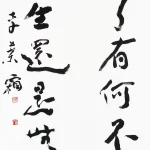 了有何不
生還是
李葉霜